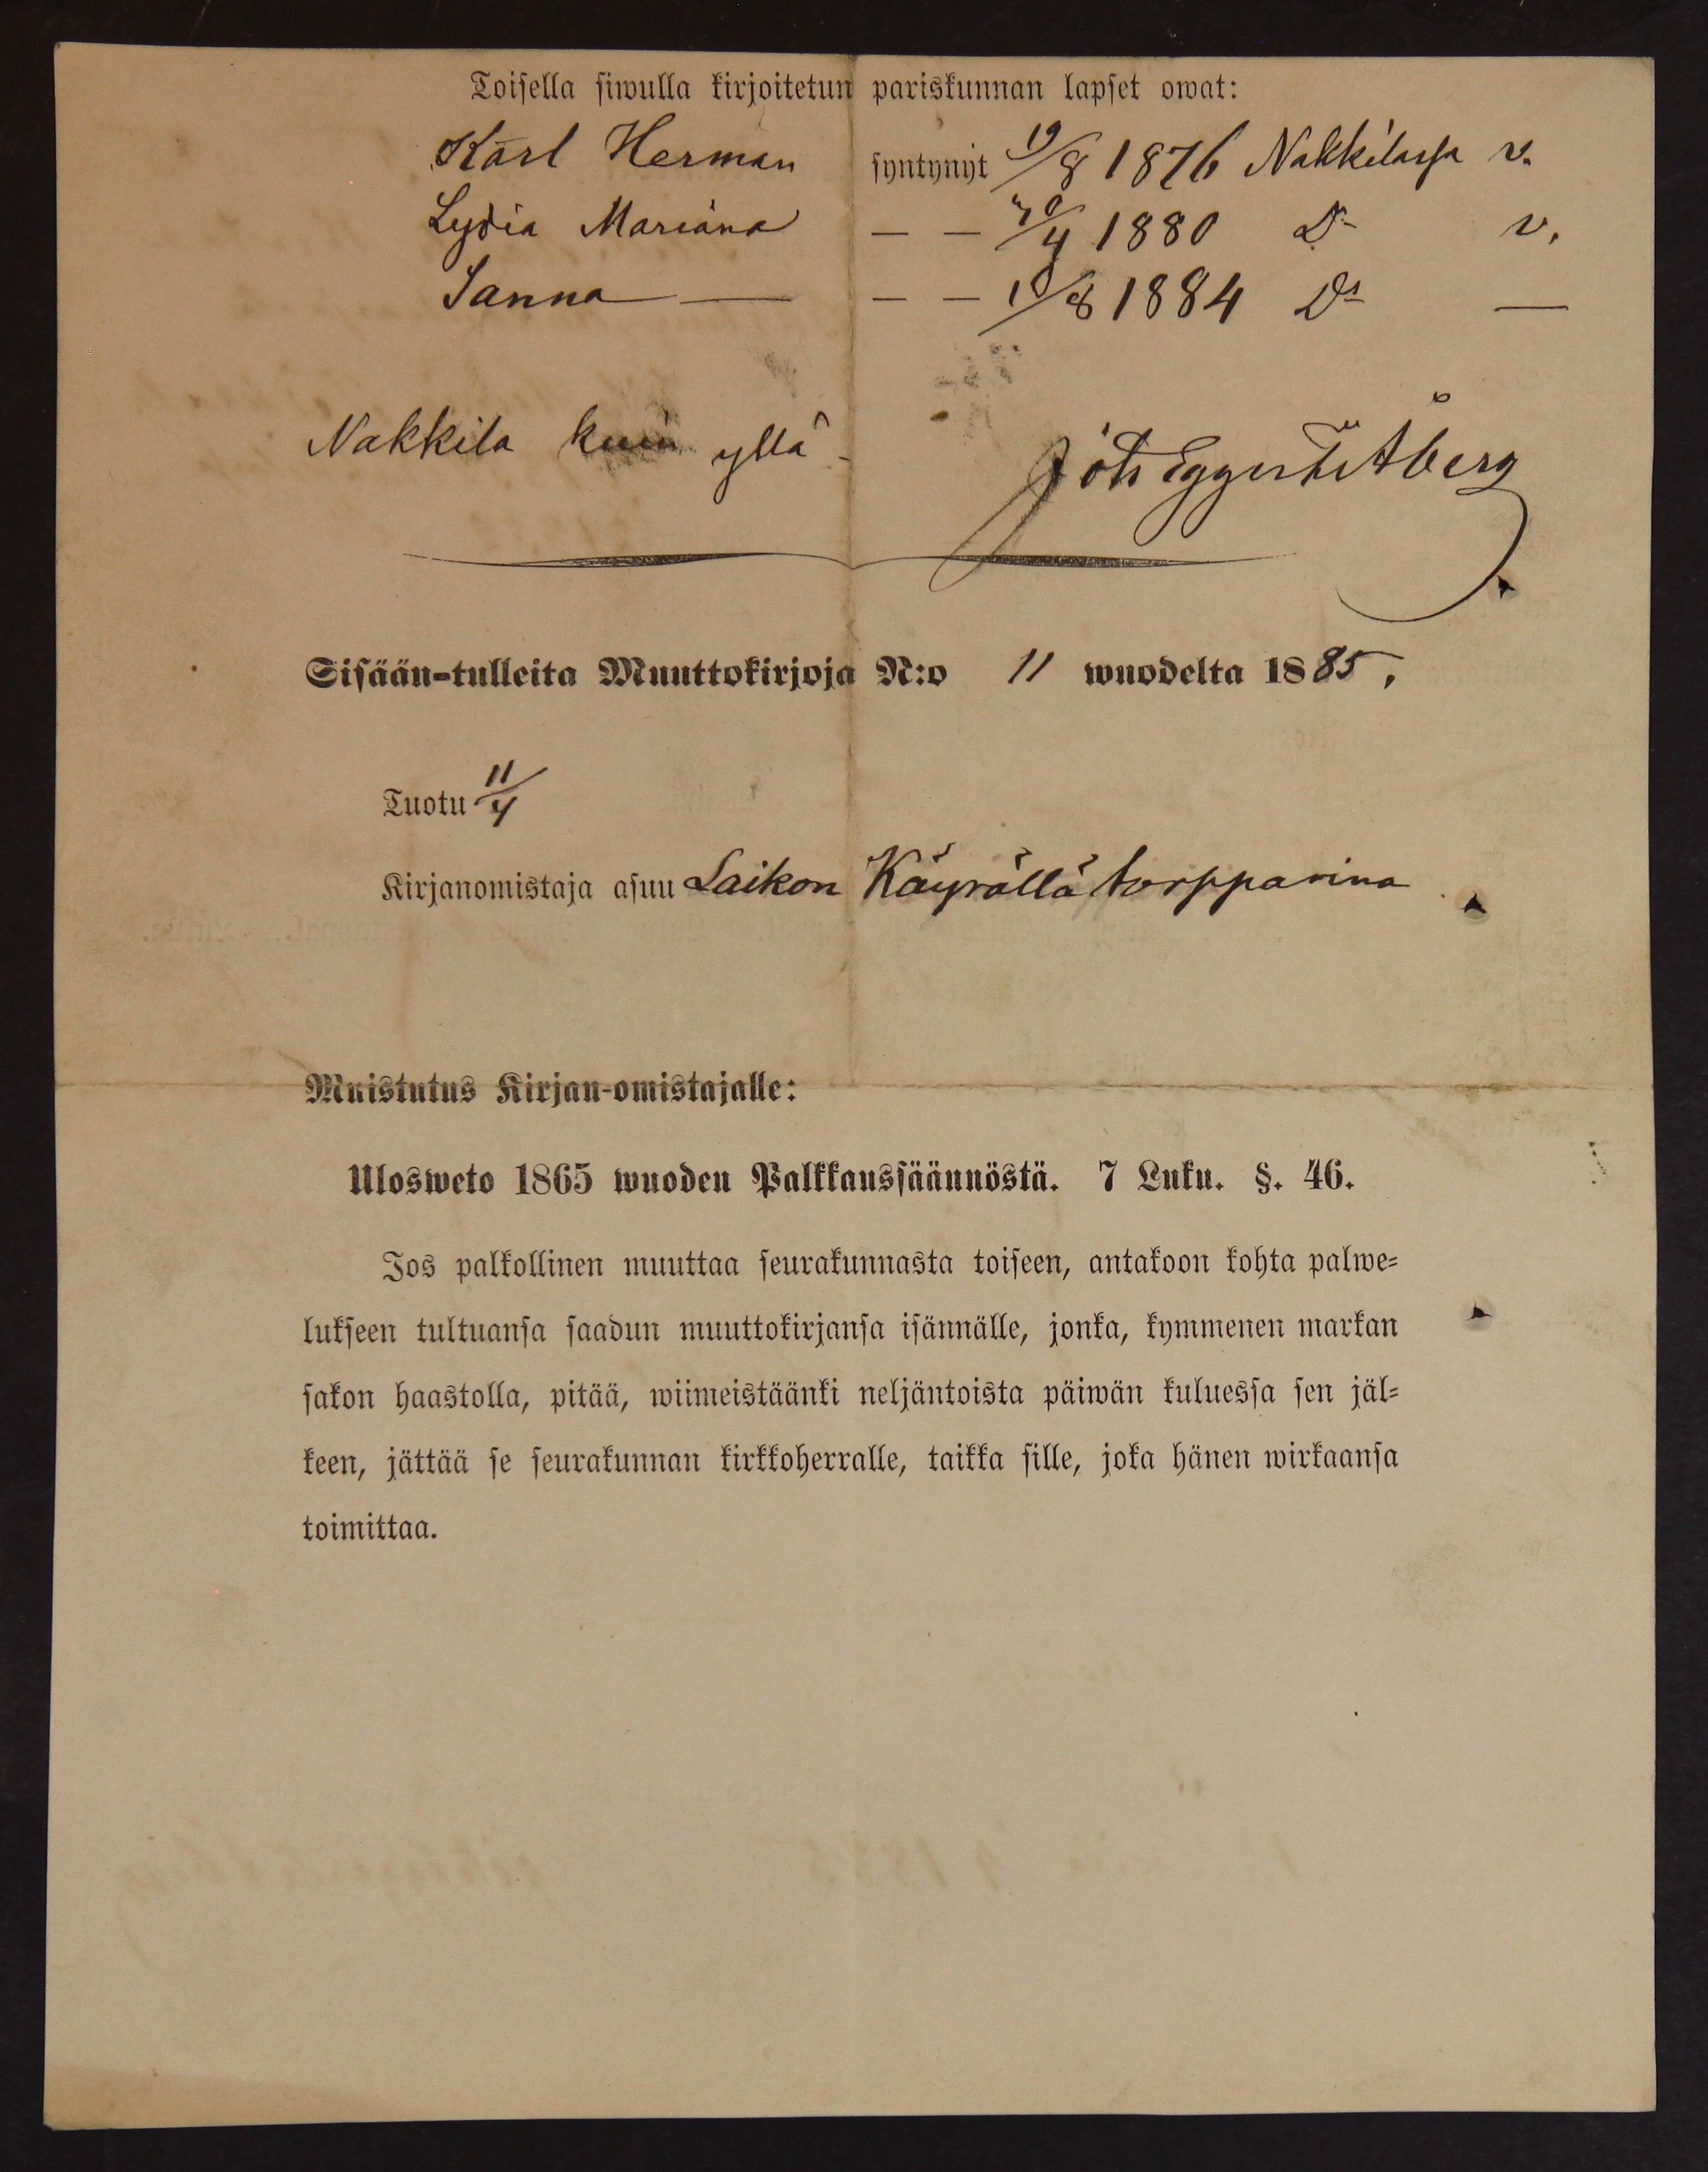 Toisella siwulla kirjoitetun pariskunnan lapset owat:
Karl Herman syntynyt 19/8 1876 Nakkilassa v.
Lydia Mariana — — /4 1880 Do v.
Sanna — — — /8 1884 Do —
Nakkila kuin yllä
Joh Eggert Åberg
Sisään-tulleita Muuttokirjoja N:o 11 wuodelta 1885.
Tuotu 11/4
Kirjanomistaja asuu Laikon Käyrällä torpparina
Muistutus Kirjan-omistajalle:
Ulosweto 1865 wuoden Palkkaussäännöstä. 7 Luku. §. 46.
Jos palkollinen muuttaa seurakunnasta toiseen, antakoon kohta palwe-
lukseen tultuansa saadun muuttokirjansa isännälle, jonka, kymmenen markan
sakon haastolla, pitää, wiimeistäänki neljäntoista päiwän kuluessa sen jäl-
keen, jättää se seurakunnan kirkkoherralle, taikka sille, joka hänen wirkaansa
toimittaa.